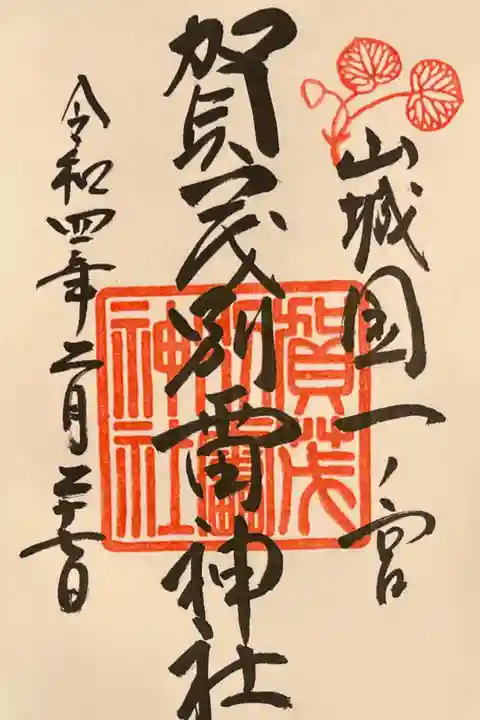 山城国一ノ宮
賀茂別雷神社
令和四年二月二十七日
賀茂
別雷
神社